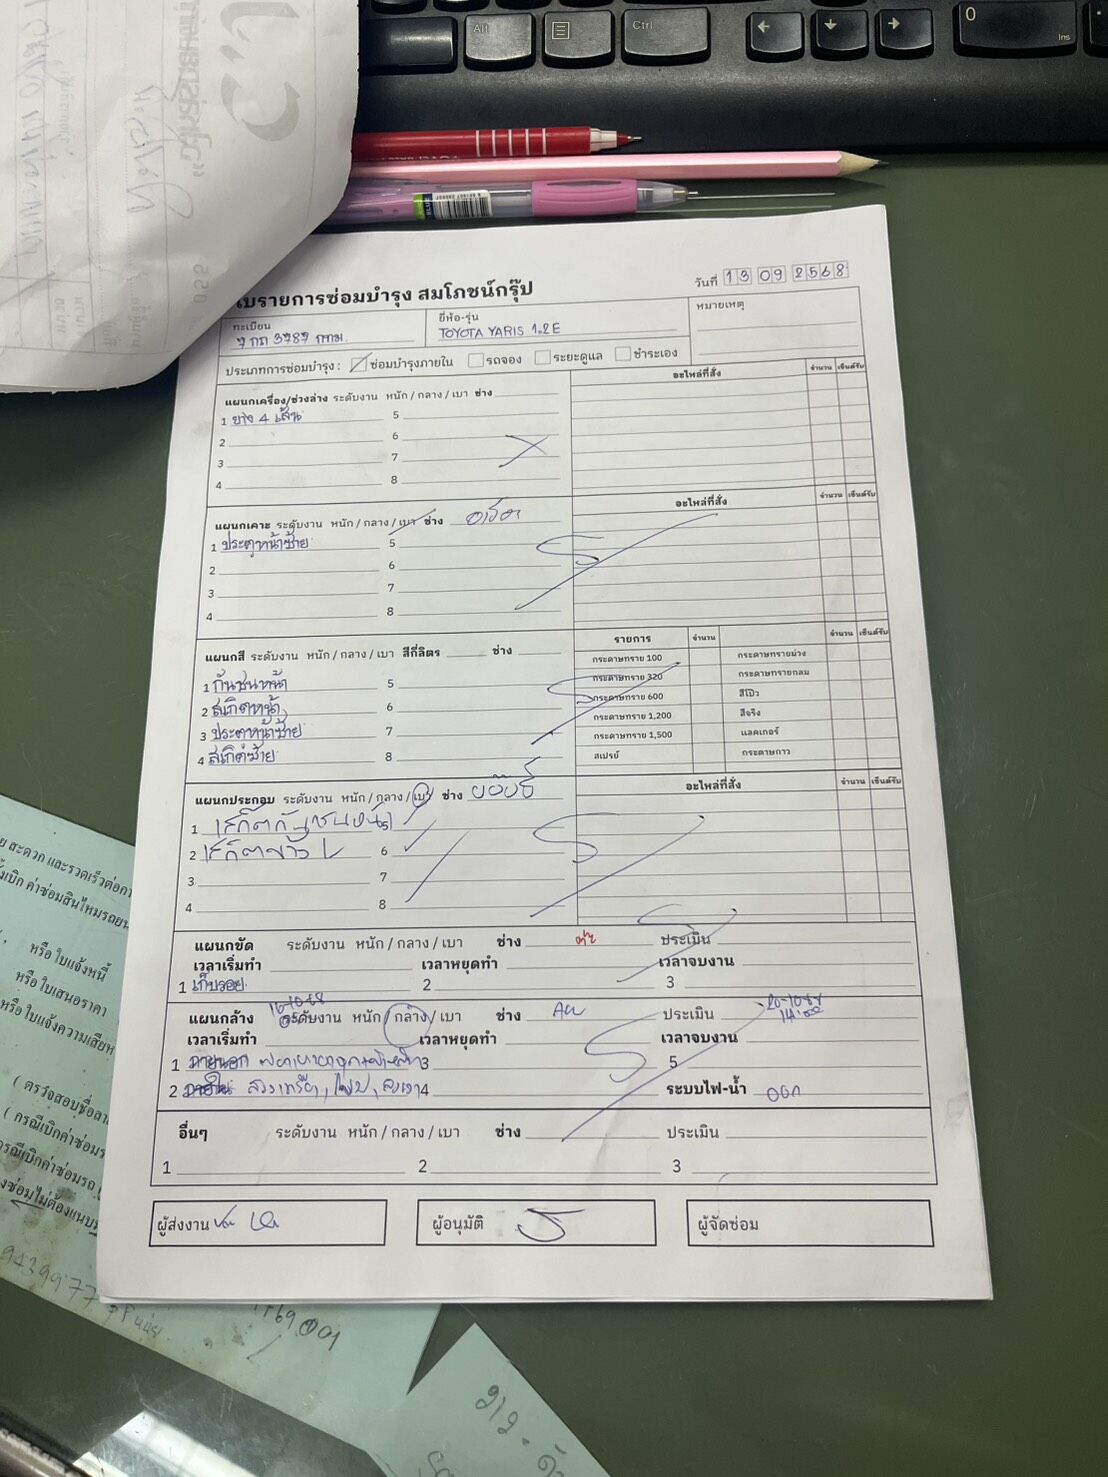 ใบรายการซ่อมบำรุง สมโภชน์กรุ๊ป
วันที่ 13 09 2568
ทะเบียน 7 กถ 3787 กทม.
ยี่ห้อ-รุ่น TOYOTA YARIS 1.2 E
หมายเหตุ
ประเภทการซ่อมบำรุง : ซ่อมบำรุงภายใน รถจอง ระยะดูแล ชำระเอง
แผนกเครื่อง/ช่วงล่าง ระดับงาน หนัก / กลาง / เบา ช่าง
อะไหล่ที่สั่ง จำนวน เซ็นต์รับ
1 ยาง 4 เส้น 5
2 6
3 7
4 8
แผนกเคาะ ระดับงาน หนัก / กลาง / เบา ช่าง
อะไหล่ที่สั่ง จำนวน เซ็นต์รับ
1 ประตูหน้าซ้าย 5
2 6
3 7
4 8
แผนกสี ระดับงาน หนัก / กลาง / เบา สีกี่ลิตร ช่าง
รายการ จำนวน จำนวน เซ็นต์รับ
1 กันชนหน้า 5
2 สเกิตหน้า 6
3 ประตูหน้าซ้าย 7
4 สเกิตซ้าย 8
กระดาษทราย 100 กระดาษทรายม่วง
กระดาษทราย 320 กระดาษทรายกลม
กระดาษทราย 600 สีโป๊ว
กระดาษทราย 1,200 สีจริง
กระดาษทราย 1,500 แลคเกอร์
สเปรย์ กระดาษกาว
แผนกประกอบ ระดับงาน หนัก / กลาง / เบา ช่าง
อะไหล่ที่สั่ง จำนวน เซ็นต์รับ
1 เสก็ตกันชนหน้า 5
2 เสก็ตข้าง L 6
3 7
4 8
แผนกขัด ระดับงาน หนัก / กลาง / เบา ช่าง ประเมิน
เวลาเริ่มทำ เวลาหยุดทำ เวลาจบงาน
1 เก็บรอย 2 3
แผนกล้าง ระดับงาน หนัก / กลาง / เบา ช่าง ประเมิน
เวลาเริ่มทำ เวลาหยุดทำ เวลาจบงาน
1 ภายนอก 3 5
2 ภายใน 4 ระบบไฟ-น้ำ
อื่นๆ ระดับงาน หนัก / กลาง / เบา ช่าง ประเมิน
1 2 3
ผู้ส่งงาน
ผู้อนุมัติ
ผู้จัดซ่อม
สะดวก และรวดเร็วต่อกา
เบิก ค่าซ่อมสินไหมรถยน
หรือ ใบแจ้งหนี้
หรือ ใบเสนอราคา
หรือ ใบแจ้งความเสียห
( ตรวจสอบชื่อลา
( กรณีเบิกค่าซ่อมร
กรณีเบิกค่าซ่อมรถ
ซ่อมไม่ต้องแนบ
Alt
Ctrl
0
Ins